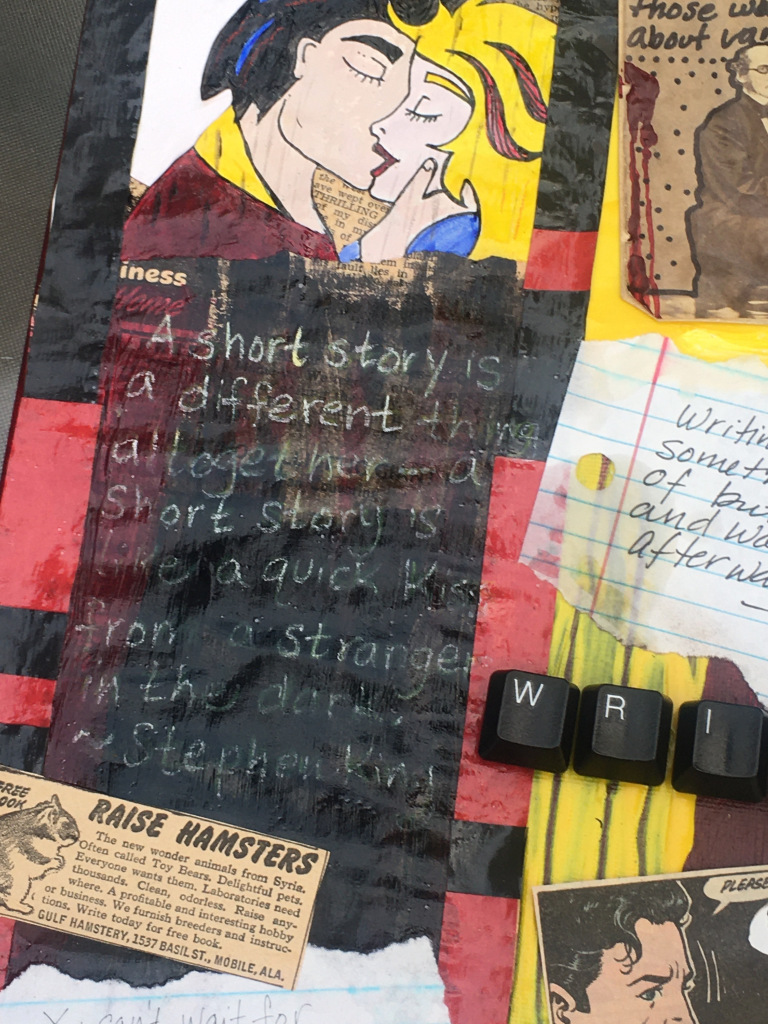 those
about
the
THRILLING
of my
in
of
iness
A short story is
a different thing
altogether – a
Short story is
like a quick kiss
from a stranger
in the dark.
~ Stephen King
of
and
W R I
FREE
BOOK
RAISE HAMSTERS
The new wonder animals from Syria.
Often called Toy Bears. Delightful pets.
Everyone wants them. Laboratories need
thousands. Clean, odorless. Raise any-
where. A profitable and interesting hobby
or business. We furnish breeders and instruc-
tions. Write today for free book.
GULF HAMSTERY, 1537 BASIL ST., MOBILE, ALA.
PLEASE
can't wait for